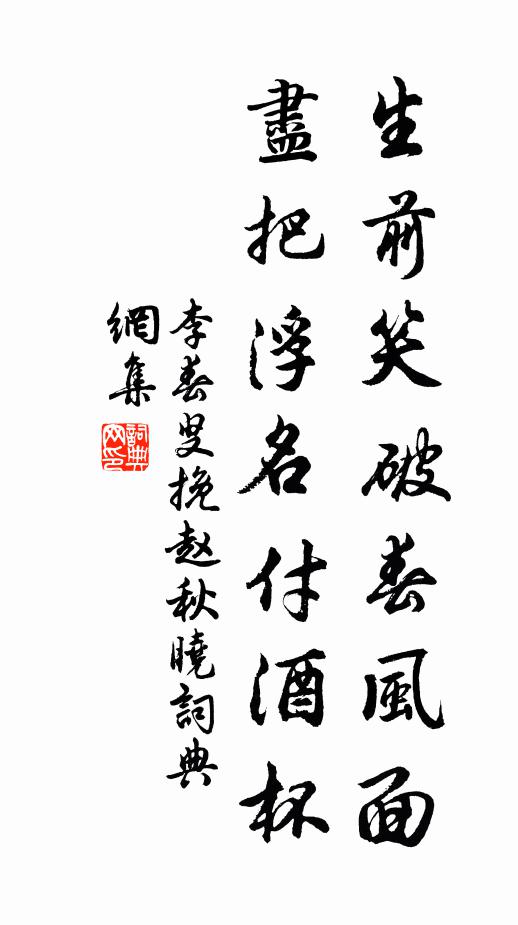 生前笑破春風面
盡把浮名付酒杯
李春叟挽赵秋曉詞典
網集
詞典
网印